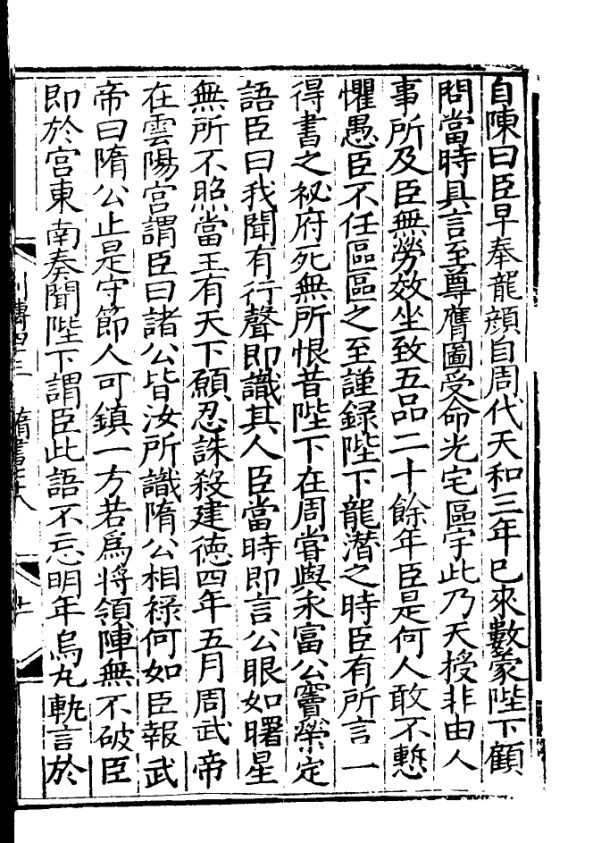 自陳曰臣早奉龍顔自周代天和三年已來數蒙陛下顧
問當時具言至尊膺圖受命光宅區宇此乃天授非由人
事所及臣無勞效坐致五品二十餘年臣是何人敢不慙
懼愚臣不任區區之至謹録陛下龍潛之時臣有所言一
得書之祕府死無所恨昔陛下在周嘗與永富公竇榮定
語臣曰我聞有行聲即識其人臣當時即言公眼如曙星
無所不照當王有天下願忍誅殺建德四年五月周武帝
在雲陽宫謂臣曰諸公皆汝所識隋公相禄何如臣報武
帝曰隋公止是守節人可鎮一方若爲將領陣無不破臣
即於宫東南奏聞陛下謂臣此語不忘明年烏丸軌言於
列傳四十三 隋書七十八